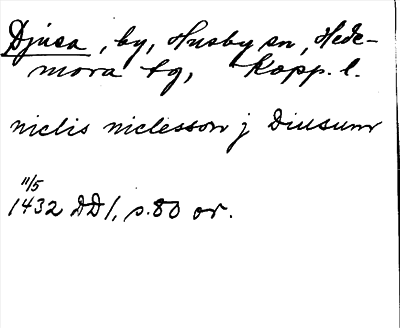 Djusa, by, Husby sn, Hede-
mora tg, Kopp. l.
niclis niclesson j Diusum
11/5
1432 DD 1, s. 80 or.